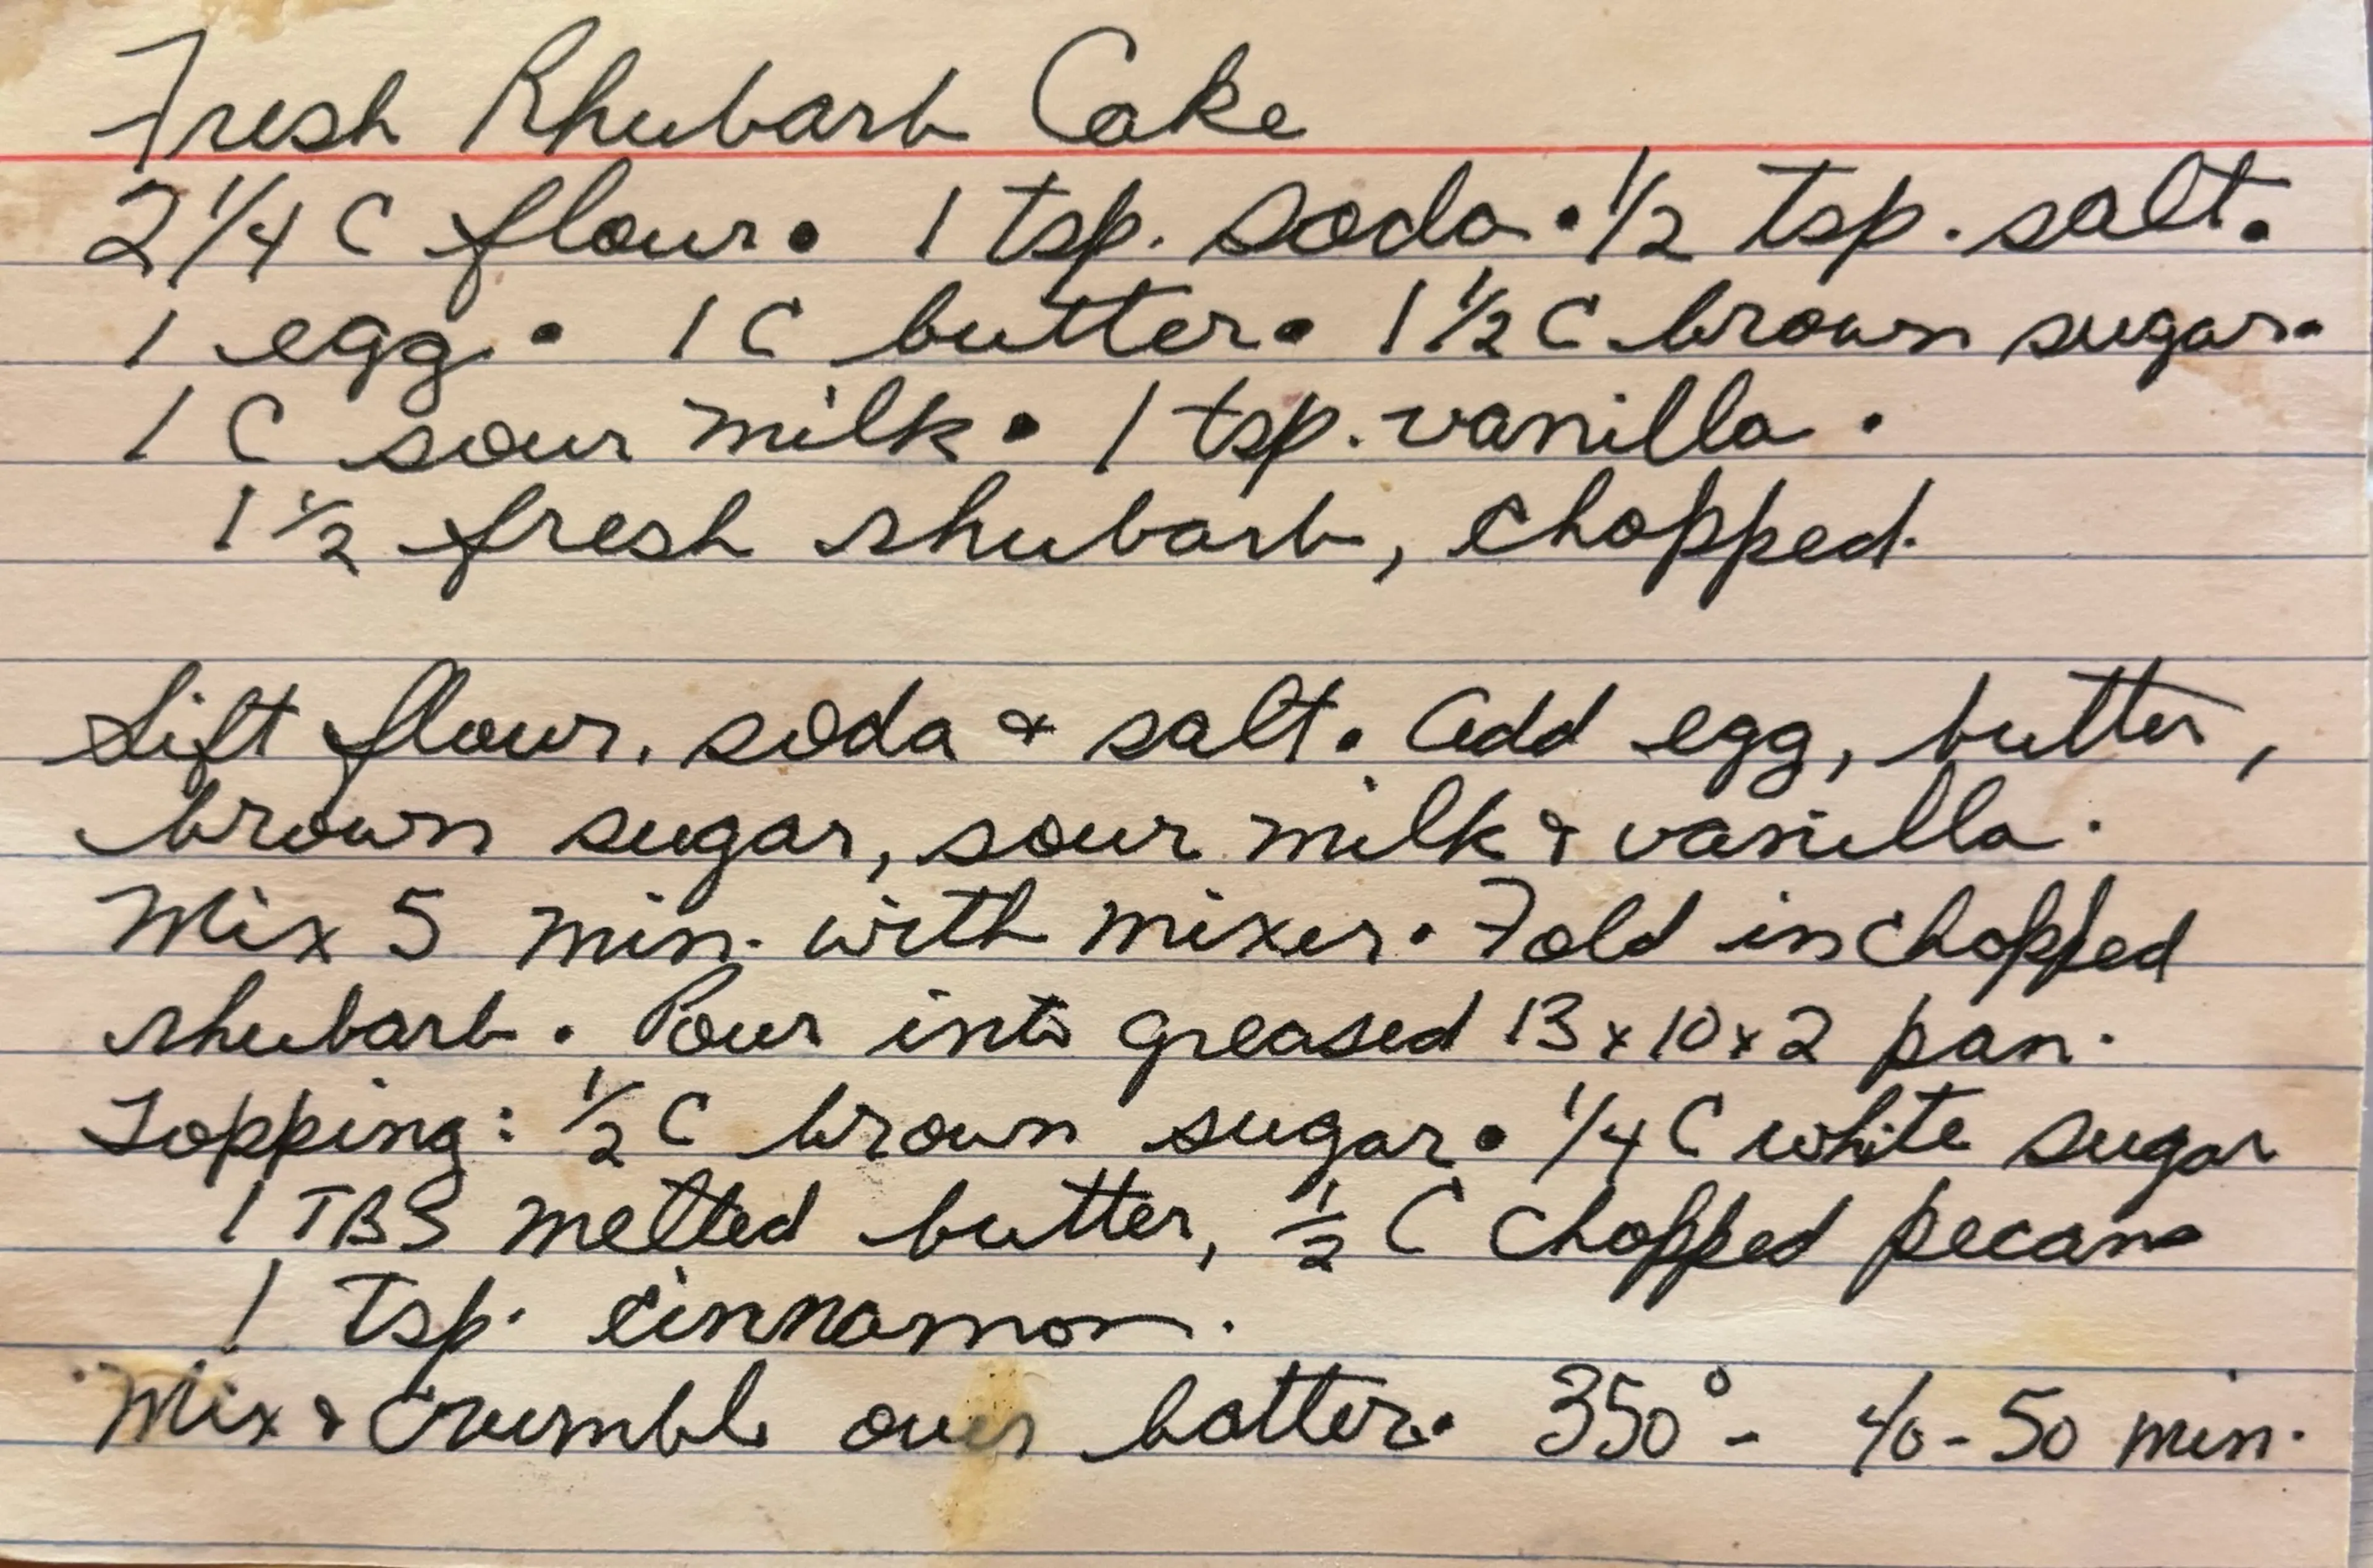 Fresh Rhubarb Cake
2 1/4 C flour • 1 tsp. soda • 1/2 tsp. salt •
1 egg • 1 C butter • 1 1/2 C brown sugar •
1 C sour milk • 1 tsp. vanilla •
1 1/2 fresh rhubarb, chopped.
Sift flour, soda & salt. Add egg, butter,
brown sugar, sour milk & vanilla.
Mix 5 min. with mixer. Fold in chopped
rhubarb. Pour into greased 13x10x2 pan.
Topping: 1/2 C brown sugar • 1/4 C white sugar
1 TBS melted butter, 1/2 C chopped pecans
1 tsp. cinnamon.
Mix & crumble over batter. 350° - 40-50 min.